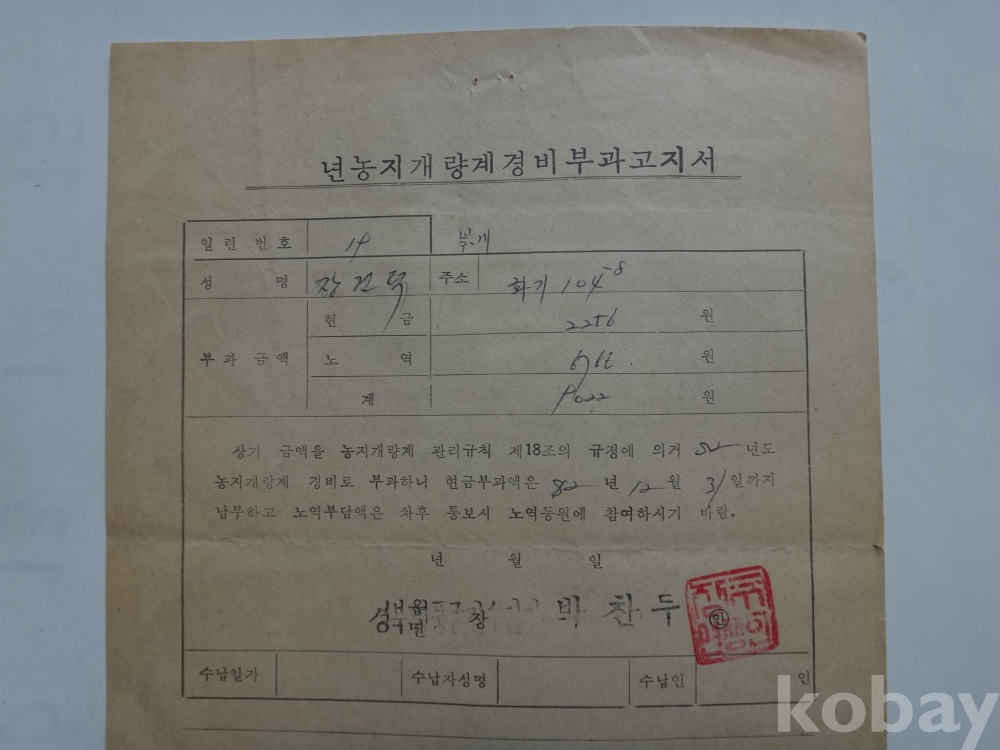 년농지개량계경비부과고지서
일련번호 19
성명 장건덕 주소 화기 104-8
현금 2256 원
부과금액 노역 6766 원
계 9022 원
상기 금액을 농지개량계 관리규칙 제18조의 규정에 의거 82 년도
농지개량계 경비로 부과하니 현금부과액은 82 년 12 월 31 일까지
납부하고 노역부담액은 차후 통보시 노역동원에 참여하시기 바람.
년 월 일
읍
면 장 박찬두 인
수납일자 수납자성명 수납인 인
kobay